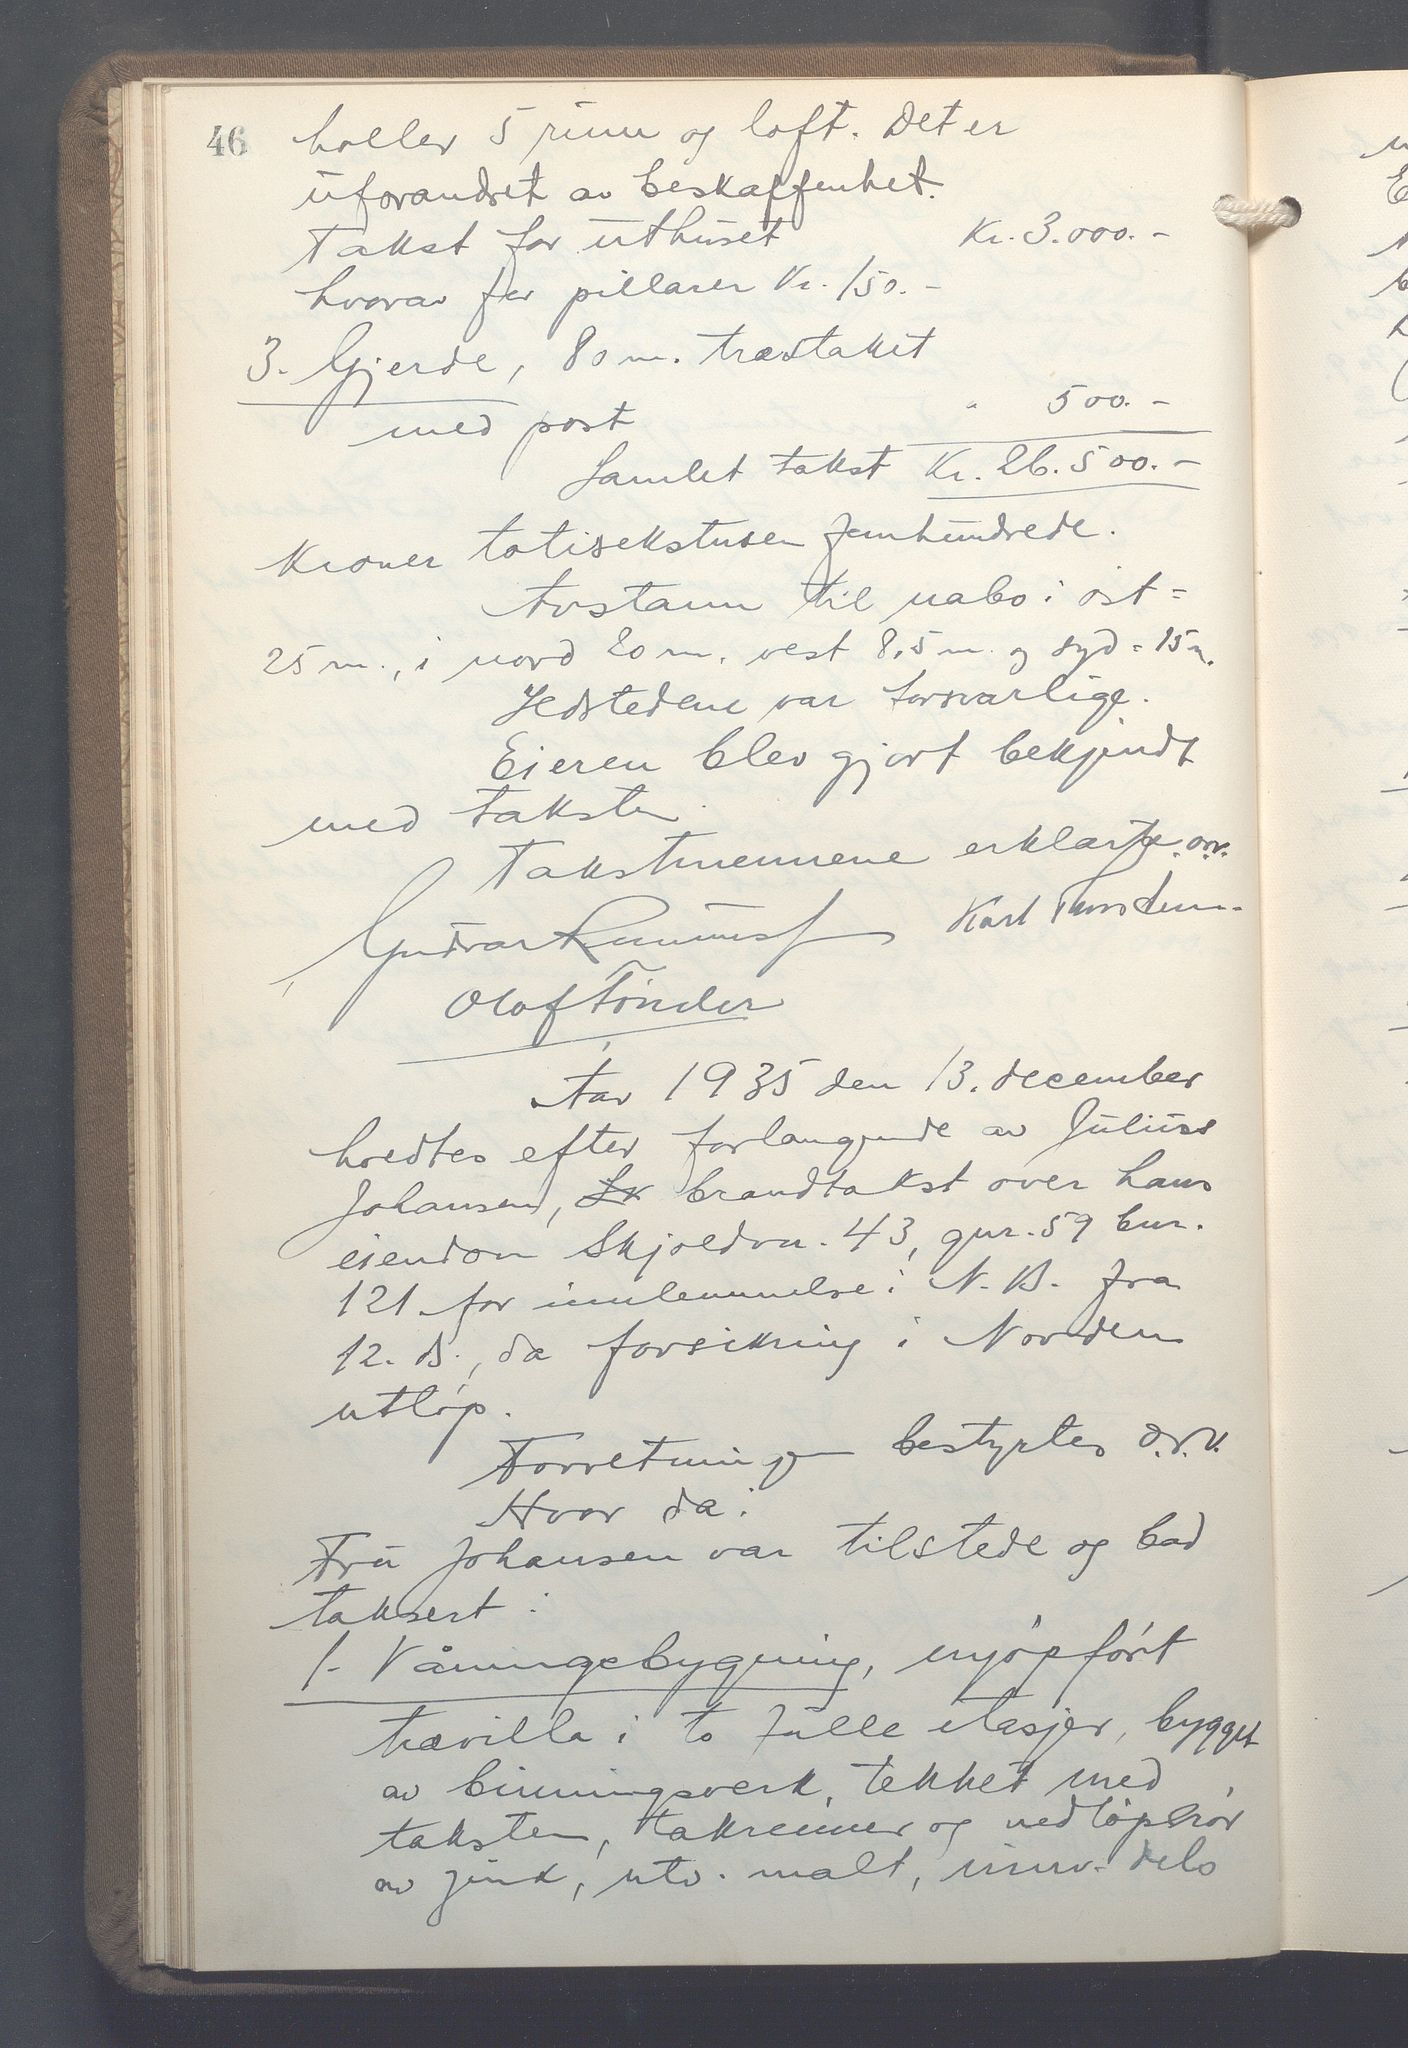 46
holler 5 rum og loft. Det er
uforandret av beskaffenhet.
Takst for uthuset Kr. 3.000.-
hvorav for pillarer Kr. 150.-
3. Gjerde, 80 m. træstakit
med port " 500.-
Samlet takst Kr. 26.500.-
Kroner totisekstusen femhundrede.
Avstann til nabo i öst =
25 m., i nord 20 m. vest 8,5 m. og syd = 15 m.
Ildstedene var forsvarlige.
Eieren blev gjort bekjendt
med taksten.
Takstmennene erklærte o.s.v.
Gudvar Karl
Olaf Tönder
Aar 1935 den 13. december
holdtes efter forlangende av Julius
Johansen, brandtakst over hans
eiendom Skjoldvn. 43, gnr. 59 bnr.
121 for innlemmelse i N.B. fra
12. ds., da forsikring i Norden
utløp.
Forretningen bestyrtes o.s.v.
Hvor da:
Fru Johansen var tilstede og bad
taksert:
1. Våningsbygning, nyopfört
trævilla i to fulle etasjer, bygget
av binningsverk, tekket med
taksten, takrenner og nedlöpsrör
av zink, utv. malt, innv. dels